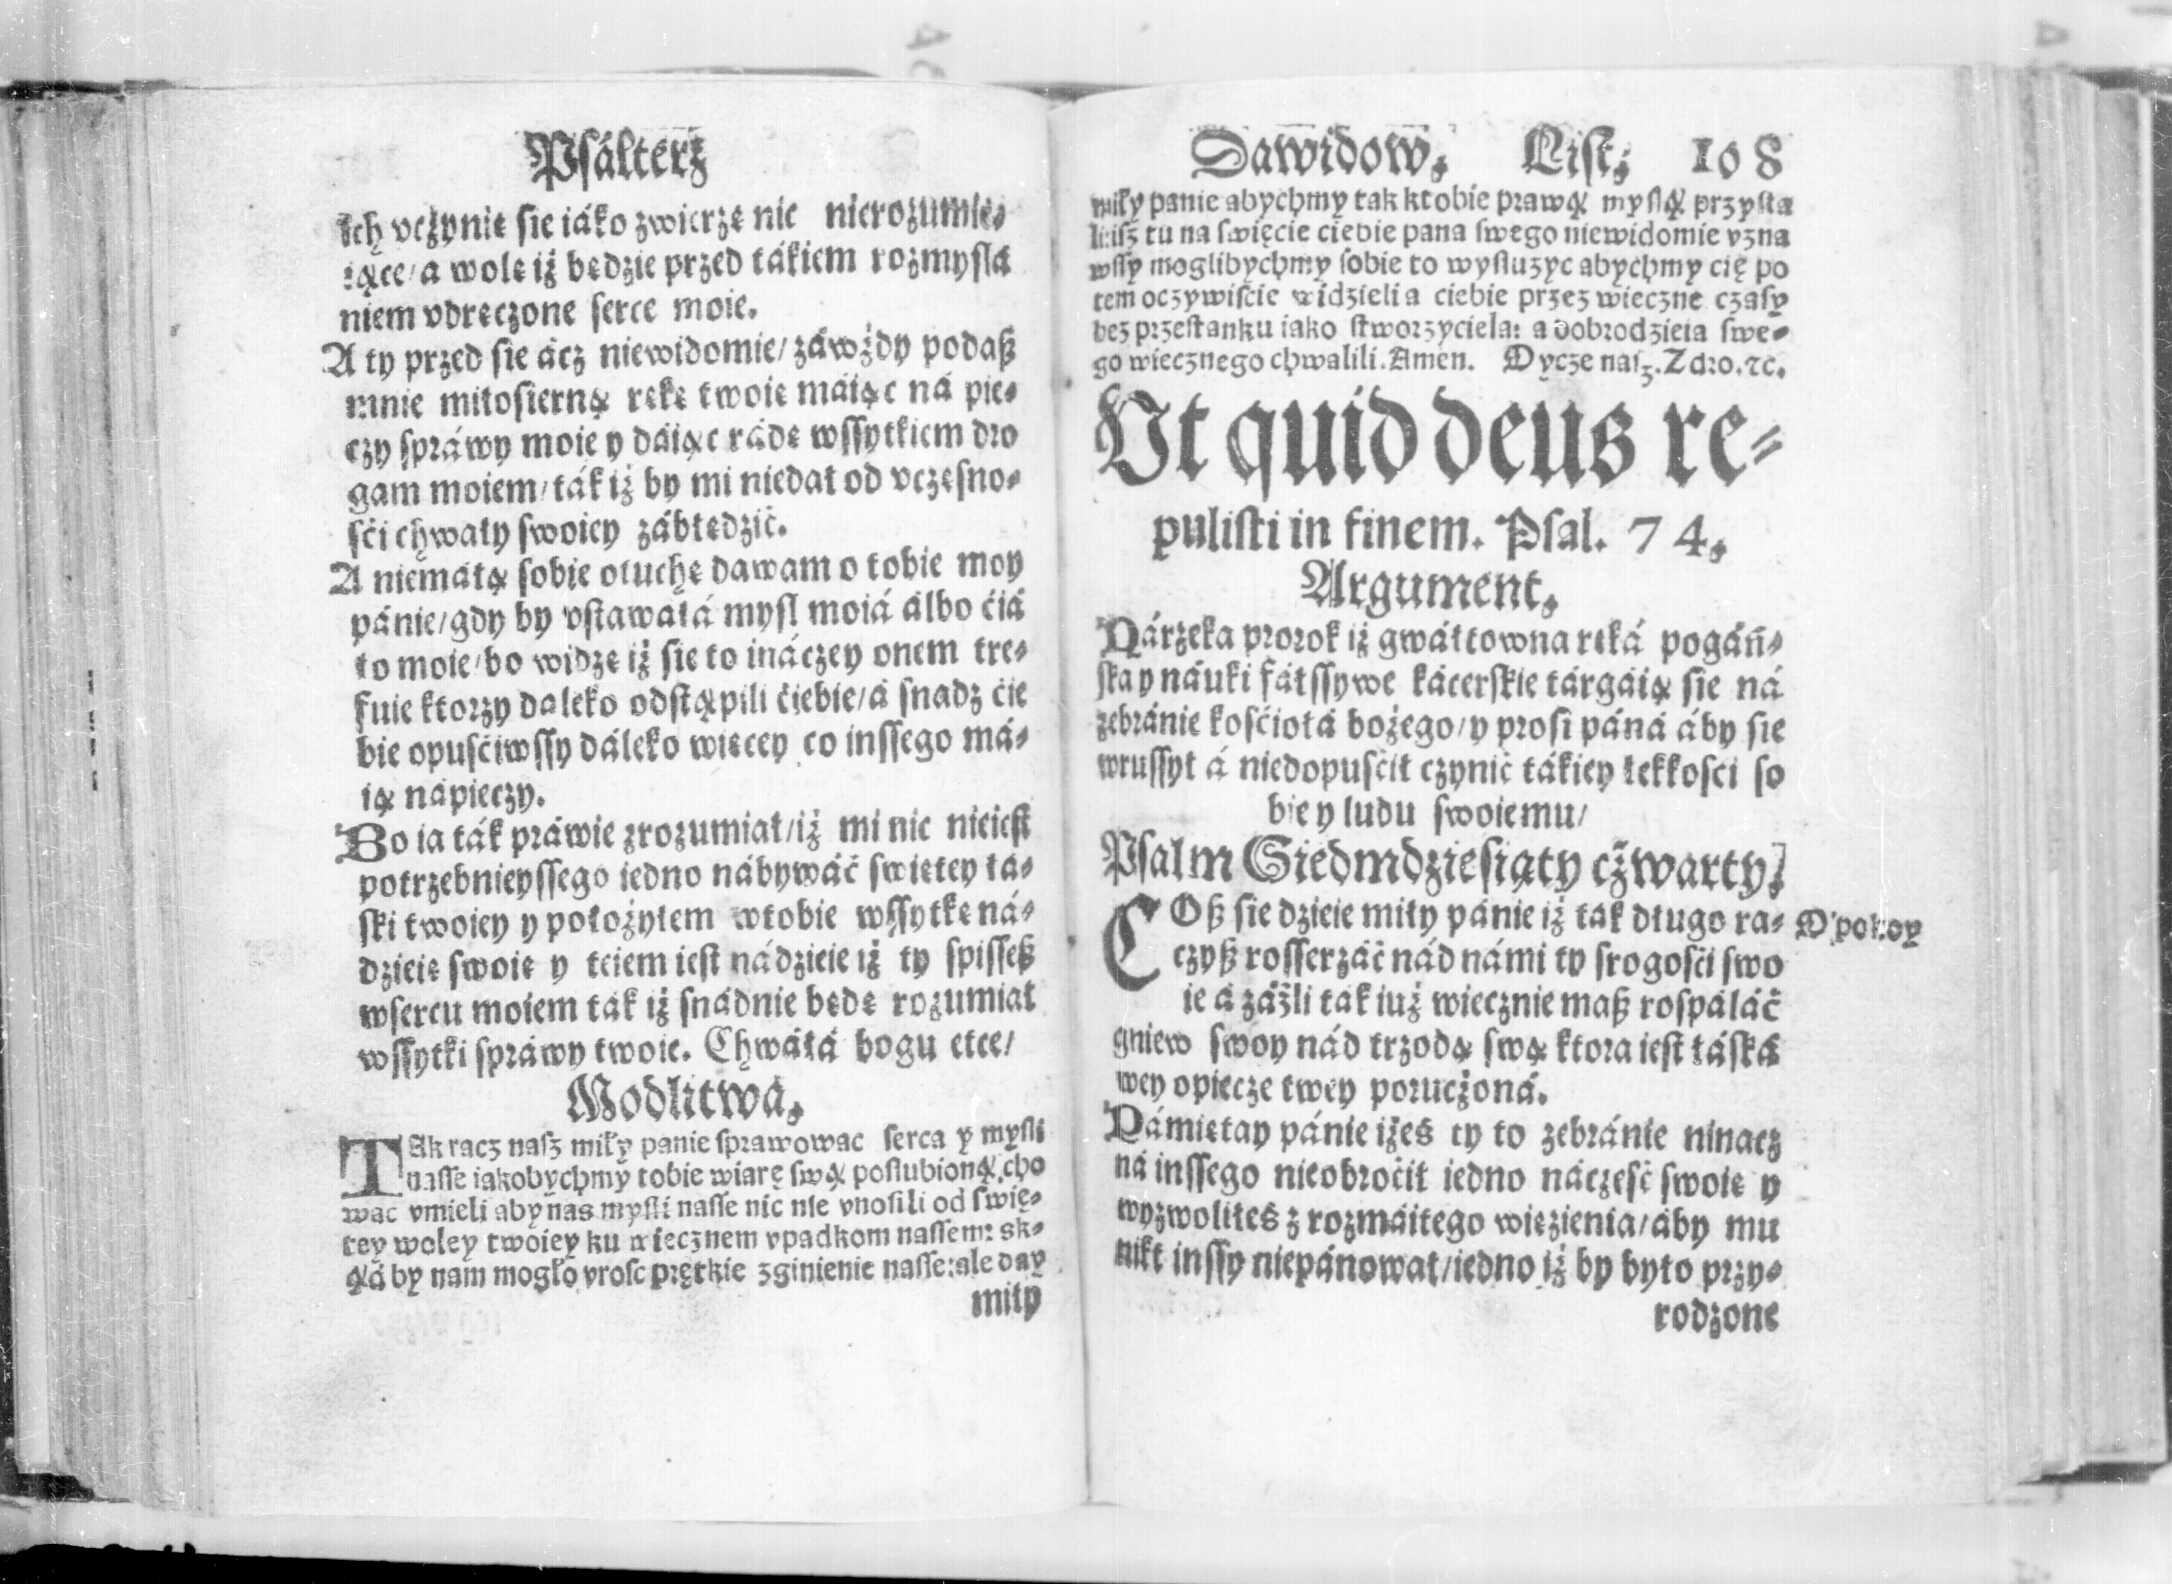 Psálterz
ich vczynię się iáko zwierzę nic nierozumie⸗
iące/ a wolę iż będzie przed tákiem rozmyślá
niem vdręczone serce moie.
A ty przed się ácz niewidomie/ záwżdy podaß
mnie miłosierną rękę twoię máiąc ná pie⸗
czy spráwy moie y dáiąc rádę wssytkiem dro
gam moiem/ ták iż by mi niedał od vczęsno⸗
śći chwały swoiey zábłędzić.
A niemáłą sobie otuchę dawam o tobie moy
pánie/ gdy by vstawáłá mysl moiá álbo ćiá
ło moie/ bo widzę iż się to ináczey onem tre⸗
fuie ktorzy daleko odstąpili ćiebie/ á snadz ćie
bie opuśćiwssy dáleko więcey co inssego má⸗
ią nápieczy.
Bo ia ták práwie zrozumiał/ iż mi nic nieiest
potrzebnieyssego iedno nábywáć swiętey łá⸗
ski twoiey y położyłem wtobie wssytkę ná⸗
dzieię swoię y teiem iest nádzieie iż ty spisseß
wsercu moiem ták iż snádnie będę rozumiał
wssytki spráwy twoie. Chwáłá bogu etce/
Modlitwá.
TAk racz nasz miły panie sprawowac serca y mysli
nasse iakobychmy tobie wiarę swą poslubioną cho
wac vmieli aby nas mysli nasse nic nie vnosili od swię⸗
tey woley twoiey ku wiecznem vpadkom nassem: sk⸗
ąd by nam mogło vrosc prętkie zginienie nasse: ale day
miły
Dawidow. List. 108
miły panie abychmy tak ktobie prawą myslą przysta
li: isz tu na swięcie ciebie pana swego niewidomie vzna
wssy moglibychmy sobie to wysluzyc abychmy cię po
tem oczywiscie widzieli a ciebie przez wieczne czasy
bez przestanku iako stworzyciela: a dobrodzieia swe⸗
go wiecznego chwalili. Amen. Oycze nasz. Zdro. ꝛc.
Vt quid deus re⸗
pulisti in finem. Psal. 74.
Argument.
Nárzeka prorok iż gwáłtowna ręká pogáń⸗
ska y náuki fałssywe kácerskie tárgáią się ná
zebránie kośćiołá bożego/ y prosi páná áby się
wrussył á niedopuśćił czynić tákiey lekkosci so
bie y ludu swoiemu/
Psalm Siedmdziesiąty czwarty.
COß się dzieie miły pánie iż ták długo ra⸗ O pokoy
czyß rosserzáć nád námi ty srogośći swo
ie á záżli ták iuż wiecznie maß rospáláć
gniew swoy nád trzodą swą ktora iest łáská
wey opiecze twey poruczoná.
Pámiętay pánie iżeś ty to zebránie ninacz
ná inssego nieobroćił iedno náczesć swoię y
wyzwoliłeś z rozmáitego więzienia/ áby mu
nikt inssy niepánował/ iedno iż by było przy⸗
rodzone